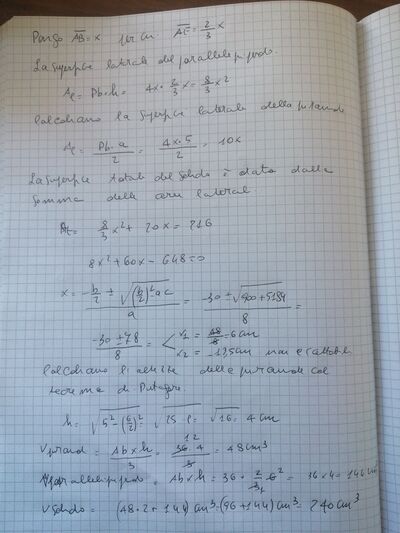 Pongo AB = x per cui AE = 2/3 x
La superficie laterale del parallelepipedo.
Al = Pb · h = 4x · 2/3 x = 8/3 x²
Calcoliamo la superficie laterale della piramide
Al = Pb · a / 2 = 4x · 5 / 2 = 10x
La superficie totale del solido è data dalla
somma delle aree laterali
At = 8/3 x² + 20x = 216
8x² + 60x - 648 = 0
x = -b/2 ± √((b/2)² ac) / a = -30 ± √(900 + 5184) / 8 =
-30 ± 78 / 8 = < x1 = 48/8 = 6 cm
x2 = -13,5 cm non è accettabile
Calcoliamo l'altezza della piramide col
teorema di Pitagora.
h = √(5² - (6/2)²) = √(25 - 9) = √16 = 4 cm
Vpiramid = Ab × h / 3 = 36 · 4 / 3 = 48 cm³
12
Vparallelepipedo = Ab × h = 36 · 2/3 6 = 36 × 4 = 144 cm
Vsolido = (48 · 2 + 144) cm³ = (96 + 144) cm³ = 240 cm³